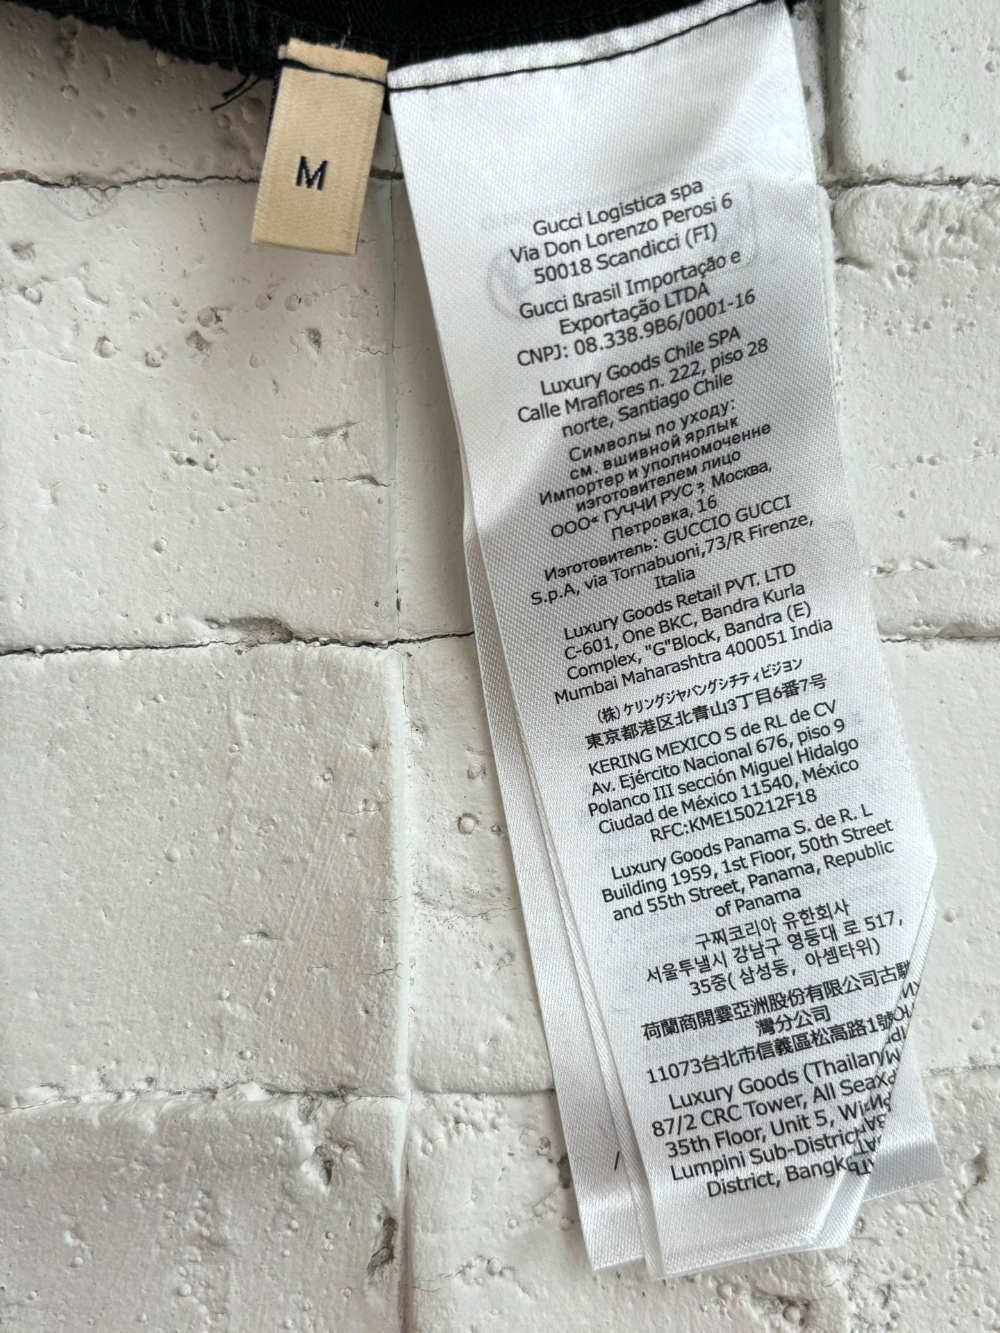 M
Gucci Logistica spa
Via Don Lorenzo Perosi 6
50018 Scandicci (FI)
Gucci ßrasil Importação e
Exportação LTDA
CNPJ: 08.338.9B6/0001-16
Luxury Goods Chile SPA
Calle Mraflores n. 222, piso 28
norte, Santiago Chile
Символы по уходу:
см. вшивной ярлык
Импортер и уполномоченне
изготовителем лицо
ООО« ГУЧЧИ РУС ? Москва,
Петровка, 16
Изготовитель: GUCCIO GUCCI
S.p.A, via Tornabuoni,73/R Firenze,
Italia
Luxury Goods Retail PVT. LTD
C-601, One BKC, Bandra Kurla
Complex, "G"Block, Bandra (E)
Mumbai Maharashtra 400051 India
(株) ケリングジャパングシチティビジョン
東京都港区北青山3丁目6番7号
KERING MEXICO S de RL de CV
Av. Ejército Nacional 676, piso 9
Polanco III sección Miguel Hidalgo
Ciudad de México 11540, México
RFC:KME150212F18
Luxury Goods Panama S. de R. L
Building 1959, 1st Fioor, 50th Street
and 55th Street, Panama, Republic
of Panama
구찌코리아 유한회사
서울투낼시 강남구 영등대 로 517,
35중( 삼성동, 아셈타워)
荷蘭商開雲亞洲股份有限公司古馳
灣分公司
11073台北市信義區松高路1號
Luxury Goods (Thailan
87/2 CRC Tower, All Sea
35th Floor, Unit 5, Wi
Lumpini Sub-District
District, Bangk